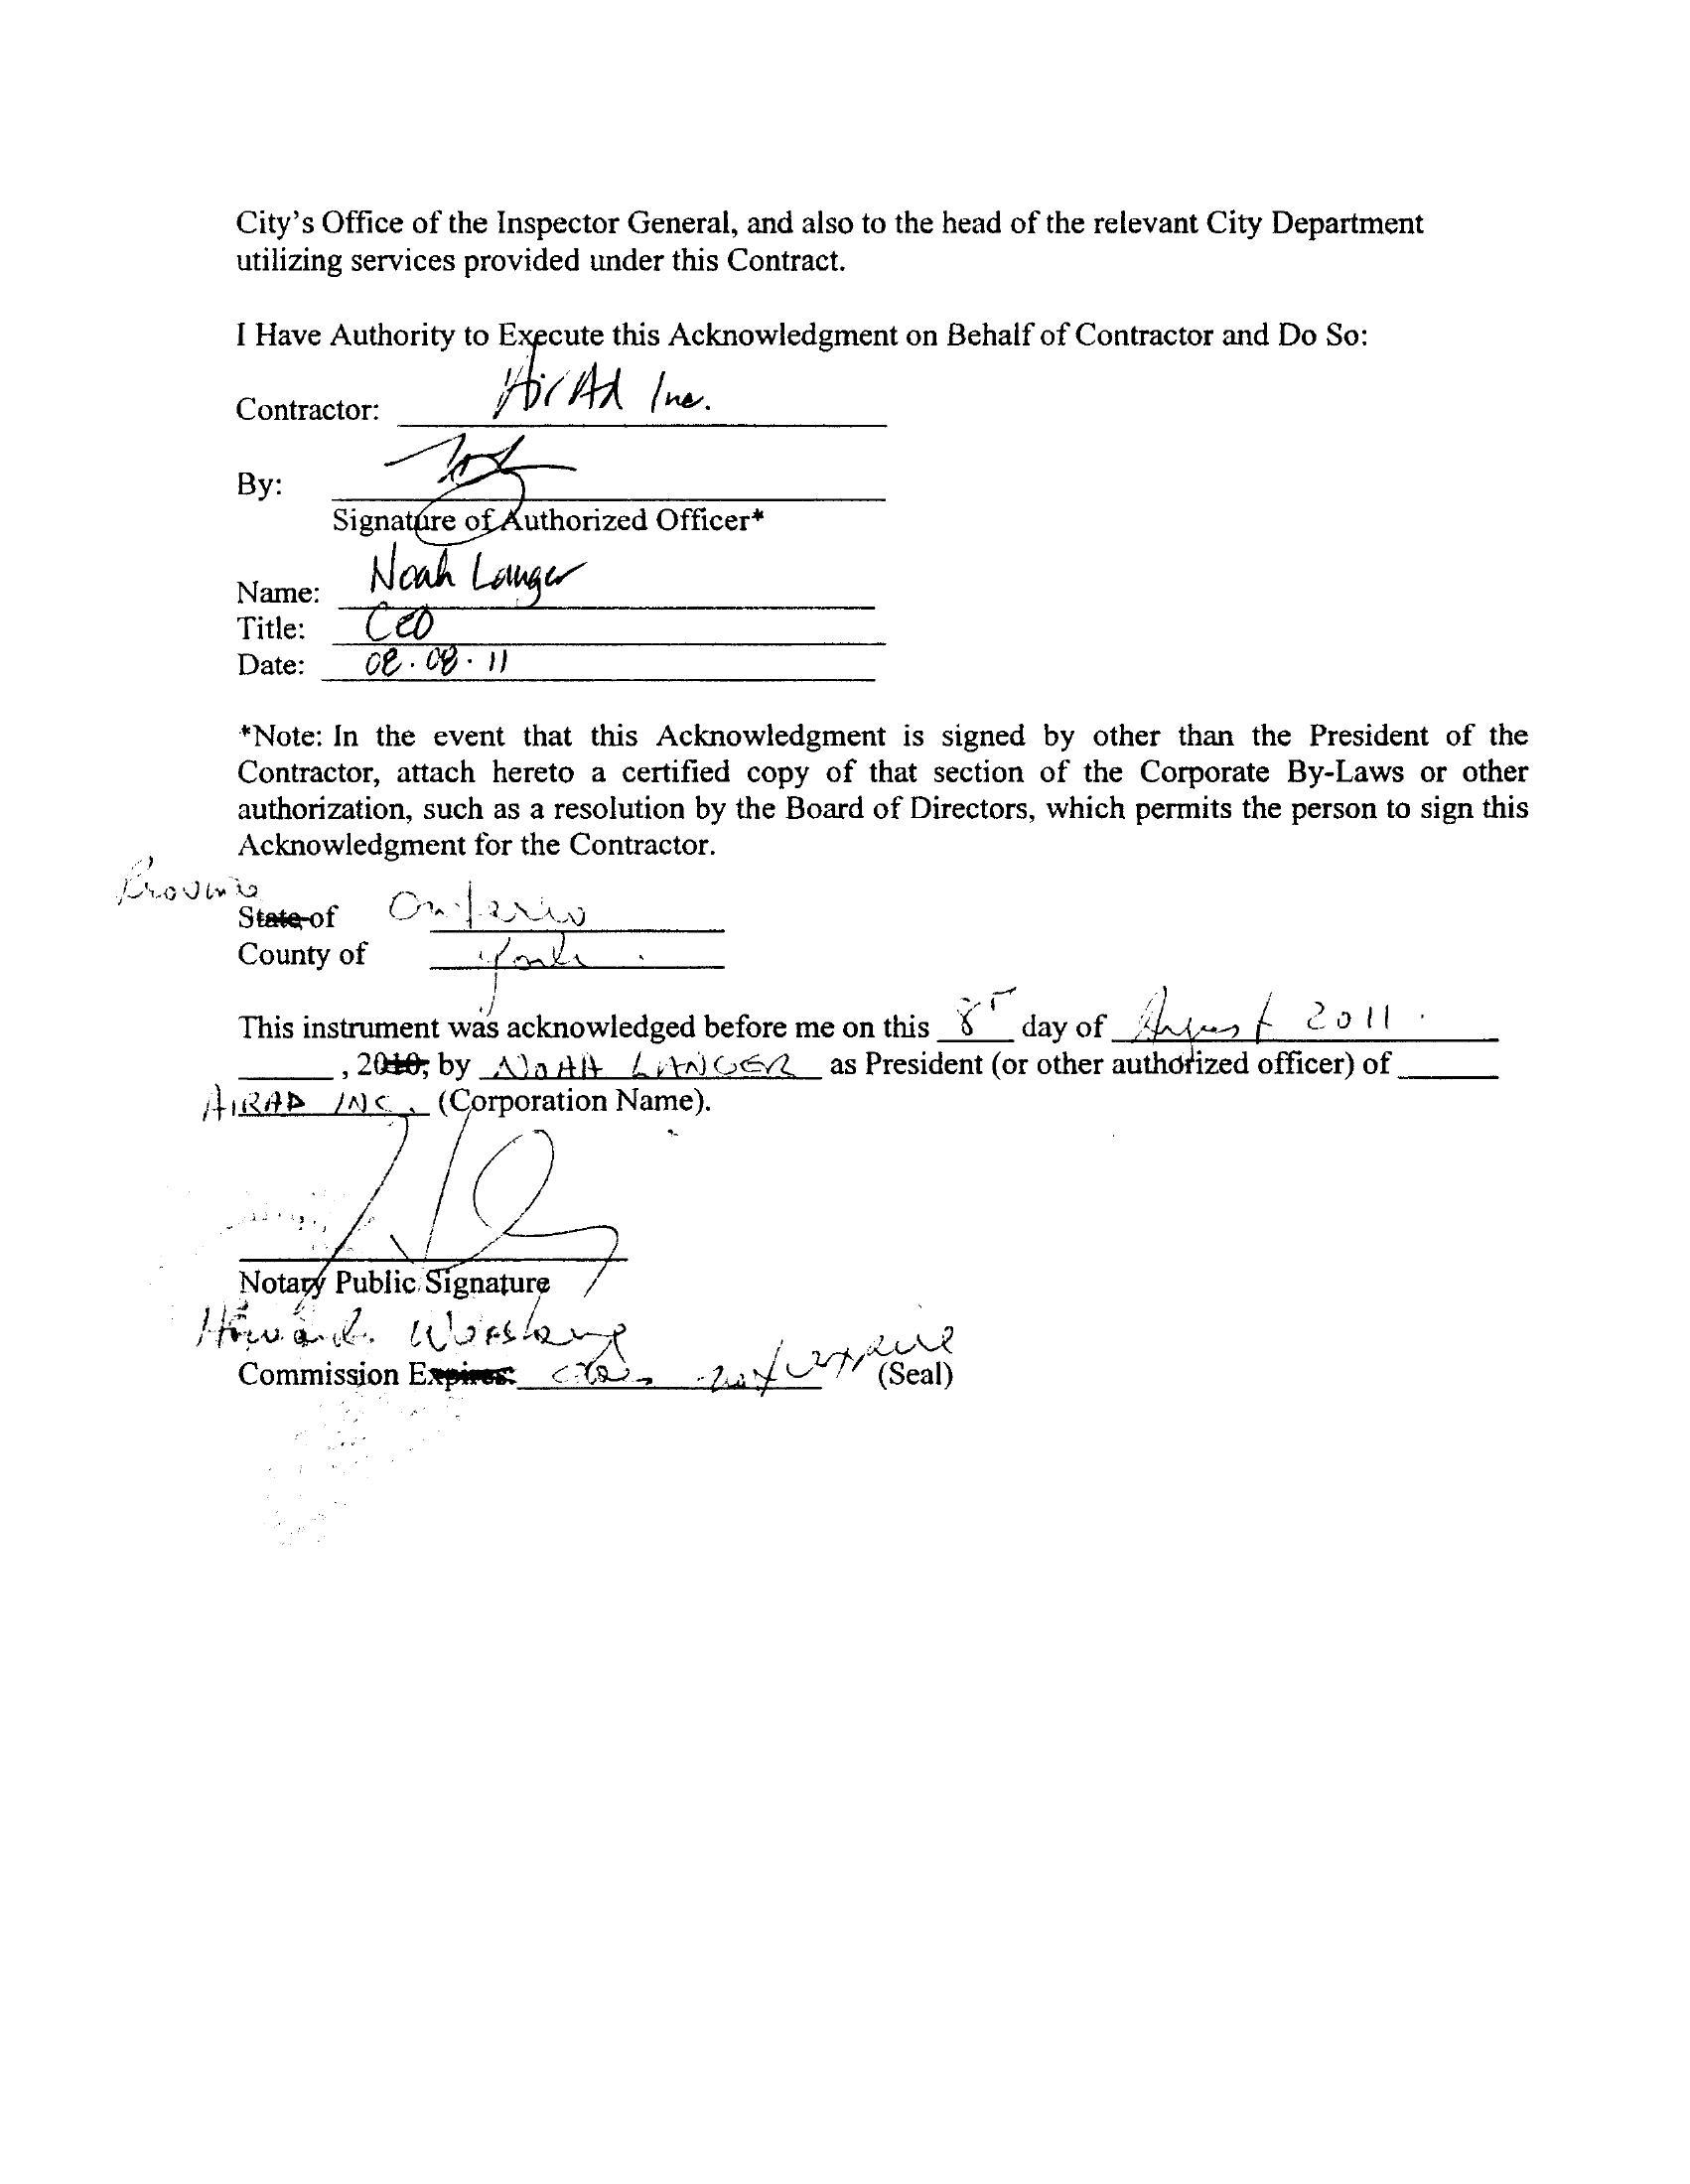 City's Office of the Inspector General, and also to the head of the relevant City Department
utilizing services provided under this Contract.
I Have Authority to Execute this Acknowledgment on Behalf of Contractor and Do So:
Contractor: AirAd Inc.
By:
Signature of Authorized Officer*
Name: Noah Langer
Title: CEO
Date: 08.08.11
*Note: In the event that this Acknowledgment is signed by other than the President of the
Contractor, attach hereto a certified copy of that section of the Corporate By-Laws or other
authorization, such as a resolution by the Board of Directors, which permits the person to sign this
Acknowledgment for the Contractor.
Province
State of Ontario
County of York
This instrument was acknowledged before me on this 8th day of August 2011.
, 2010, by NOAH LANGER as President (or other authorized officer) of
AIRAD INC. (Corporation Name).
Notary Public Signature
Howard
Commission Expires: does not expire (Seal)